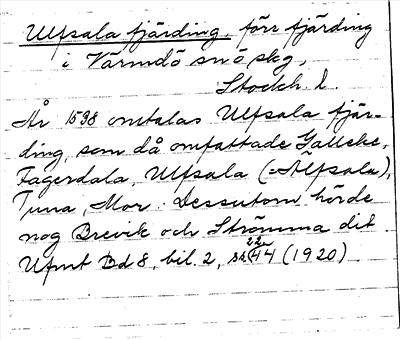 Ulfsala fjärding, förr fjärding
i Värmdö snö skg,
Stockh. l.
År 1538 omtalas Ulfsala fjär-
ding, som då omfattade
Fagerdala, Ulfsala (=Älfsala),
Tuna, Mor. Dessutom hörde
nog Brevik och Strömma dit
Ufmt Bd 8, bil. 2, s. 22 44 (1920).